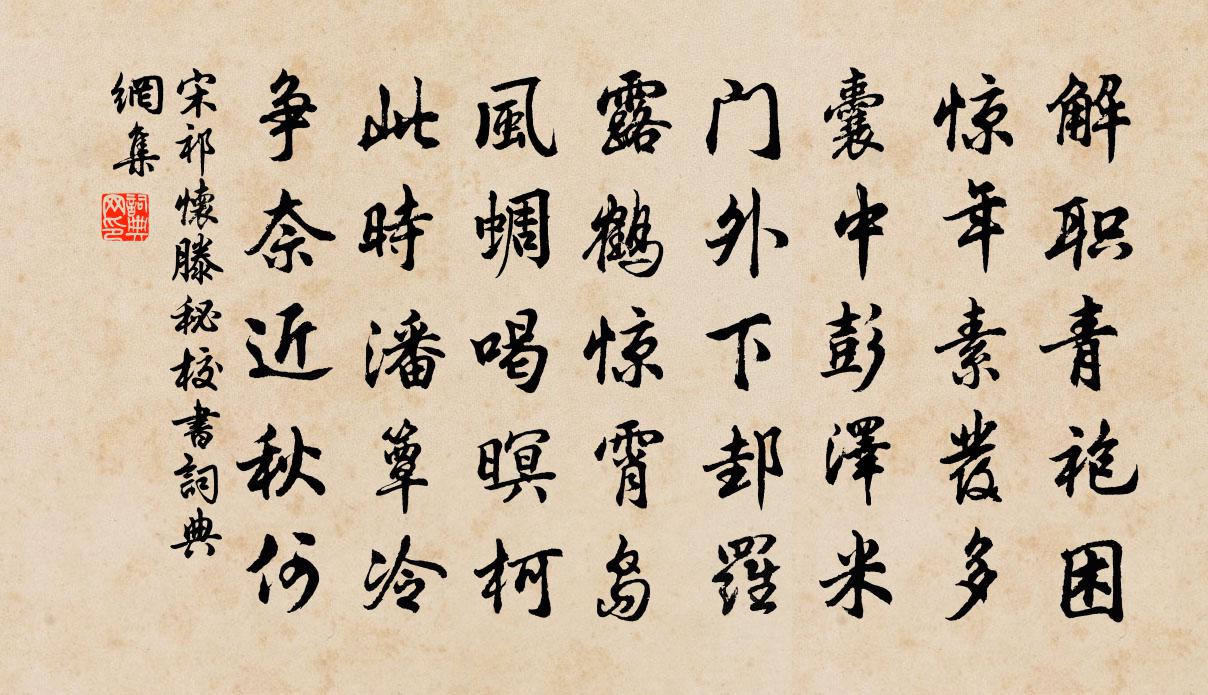 解职青袍困
惊年素发多
囊中彭泽米
门外下邽羅
露鹤惊霄岛
風蜩喝暝柯
此時潘簟冷
争奈近秋何
宋祁懷滕秘校書詞典
網集
詞典網印